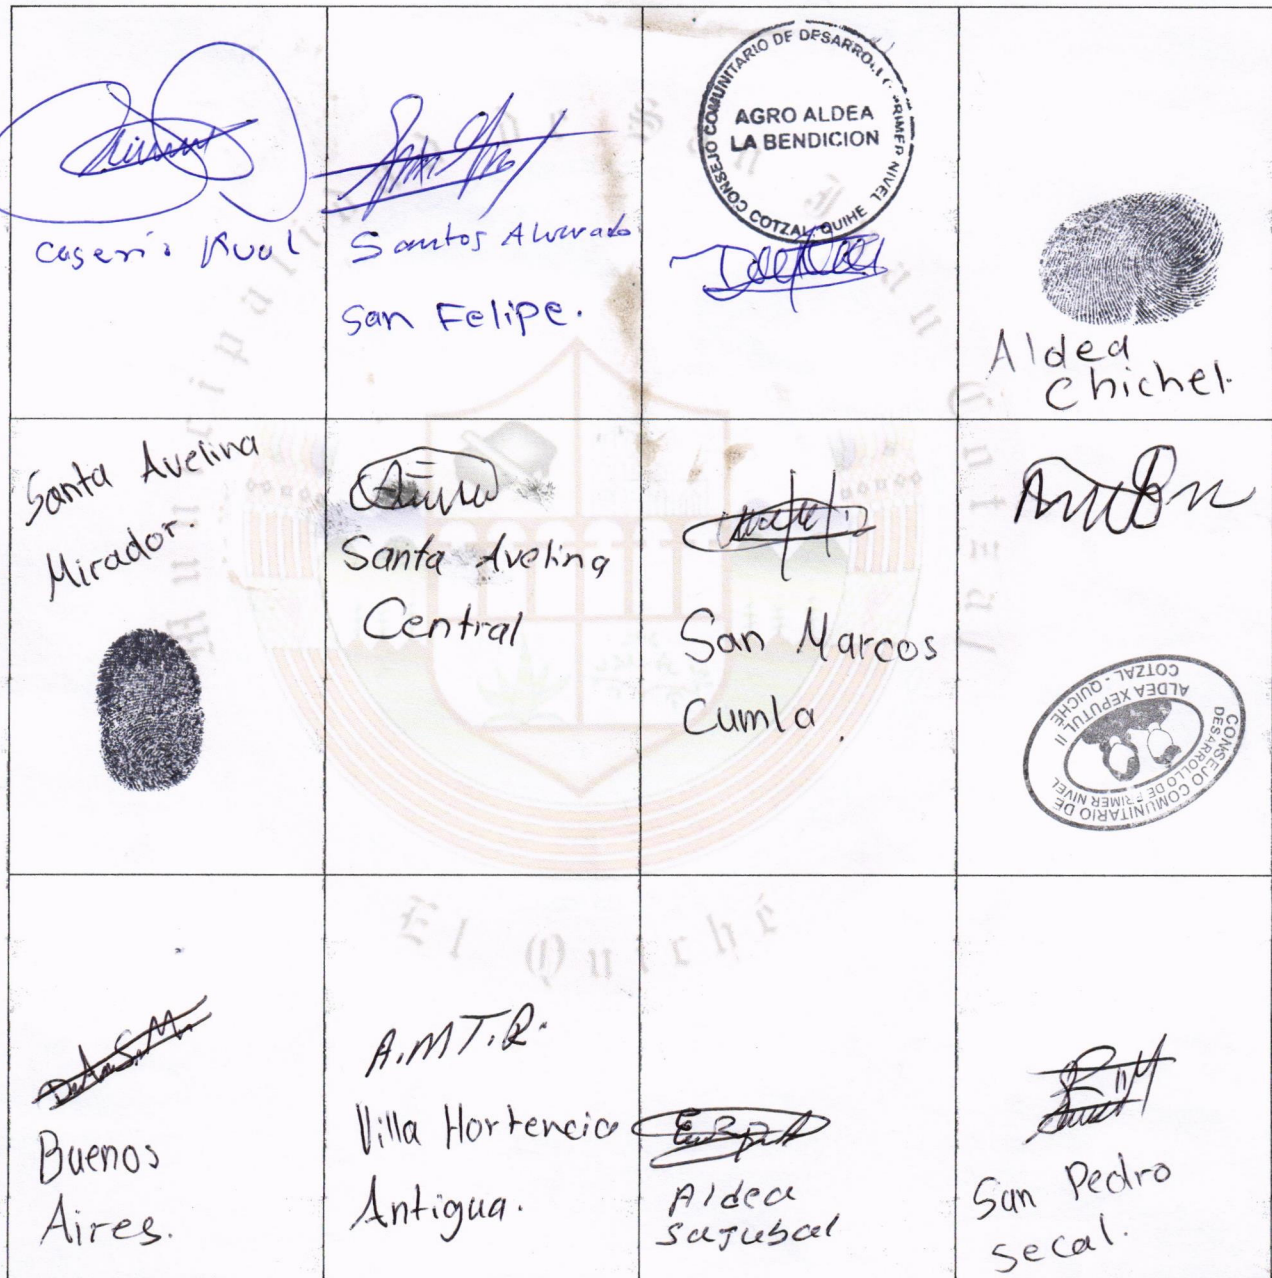 Santos Alvarado
San Felipe.
CONSEJO COMUNITARIO DE DESARROLLO PRIMER NIVEL
AGRO ALDEA
LA BENDICION
COTZAL, QUIHE
Aldea
Chichel.
Santa Avelina
Mirador.
Santa Avelina
Central
San Marcos
Cumla.
CONSEJO COMUNITARIO DE
DESARROLLO DE PRIMER NIVEL
ALDEA XEPUTUL II
COTZAL - QUICHÉ
Buenos
Aires.
A.M.T.R.
Villa Hortencia
Antigua.
Aldea
Sajubal
San Pedro
Secal.
Municipalidad de San Juan Cotzal
El Quiché